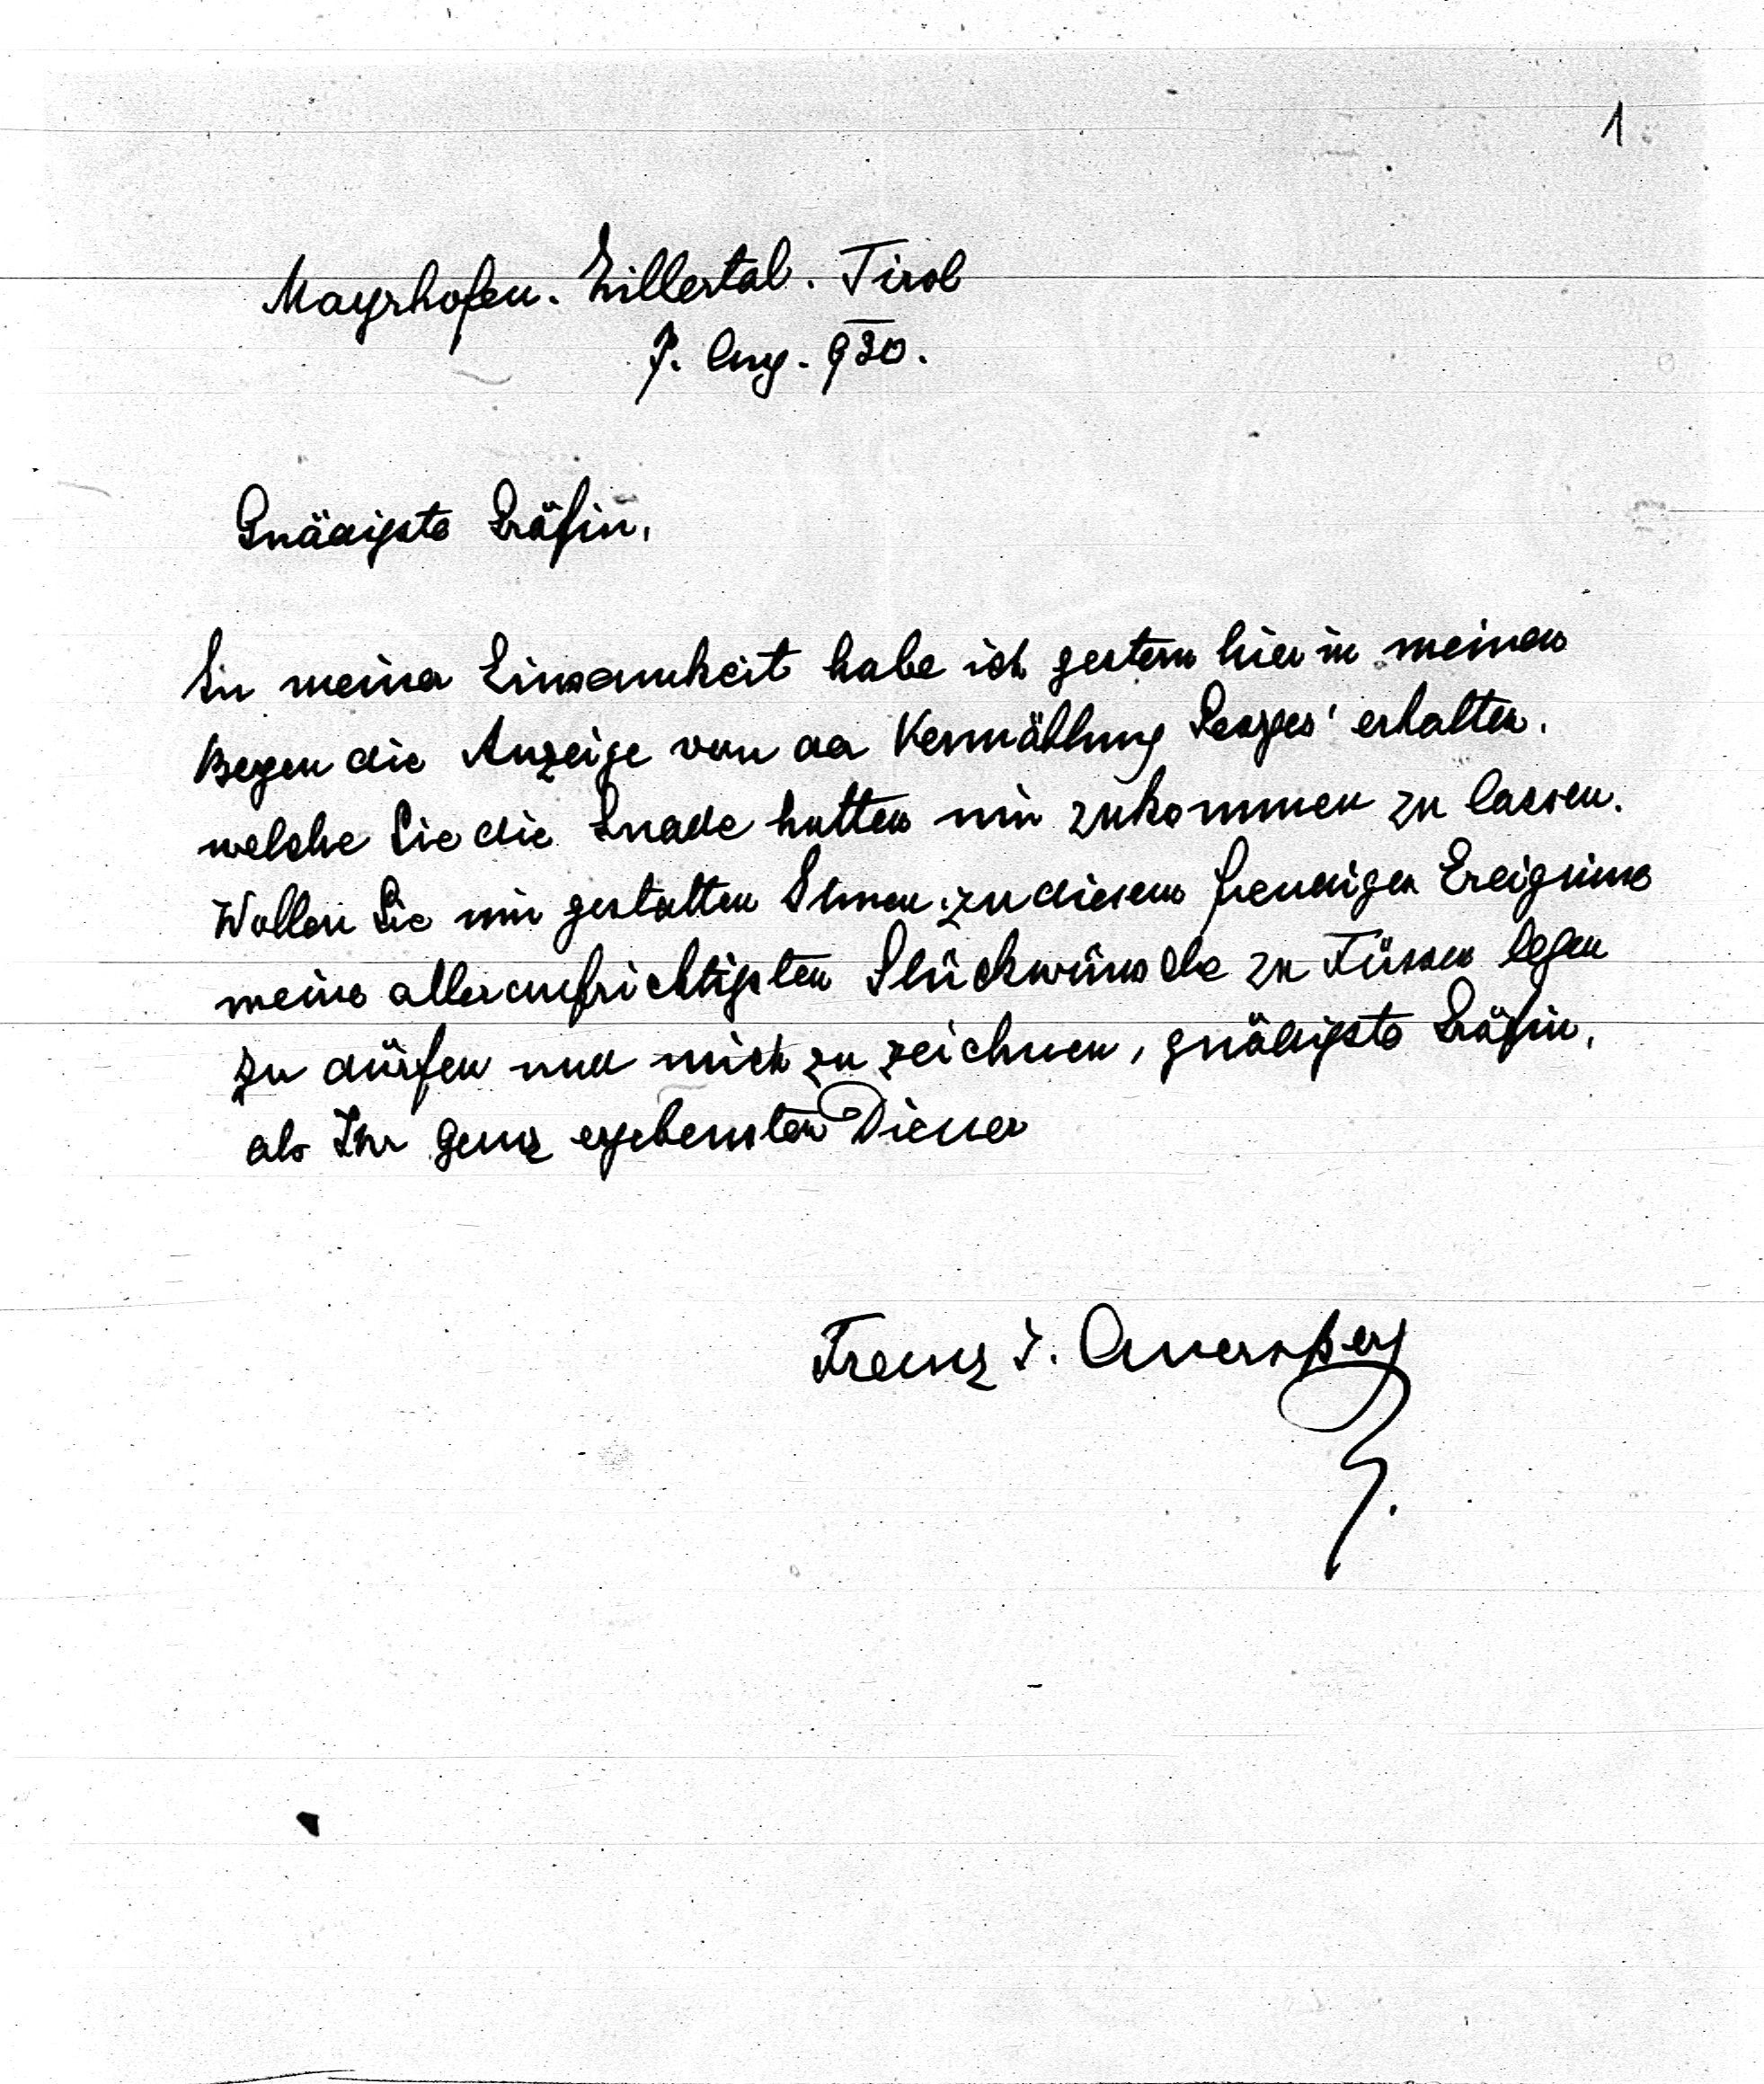 1
Mayrhofen. Zillertal. Tirol
7. Aug. 930.
Gnädigste Gräfin,
In meiner Einsamkeit habe ich gestern hier in meinen
Bergen die Anzeige von der Vermählung Georges' erhalten,
welche Sie die Gnade hatten mir zukommen zu lassen.
Wollen Sie mir gestatten Ihnen zu diesem freudigen Ereignisse
meine alleraufrichtigsten Glückwünsche zu Füssen legen
zu dürfen und mich zu zeichnen, gnädigste Gräfin,
als Ihr ganz ergebensten Diener
Franz J. Auersperg